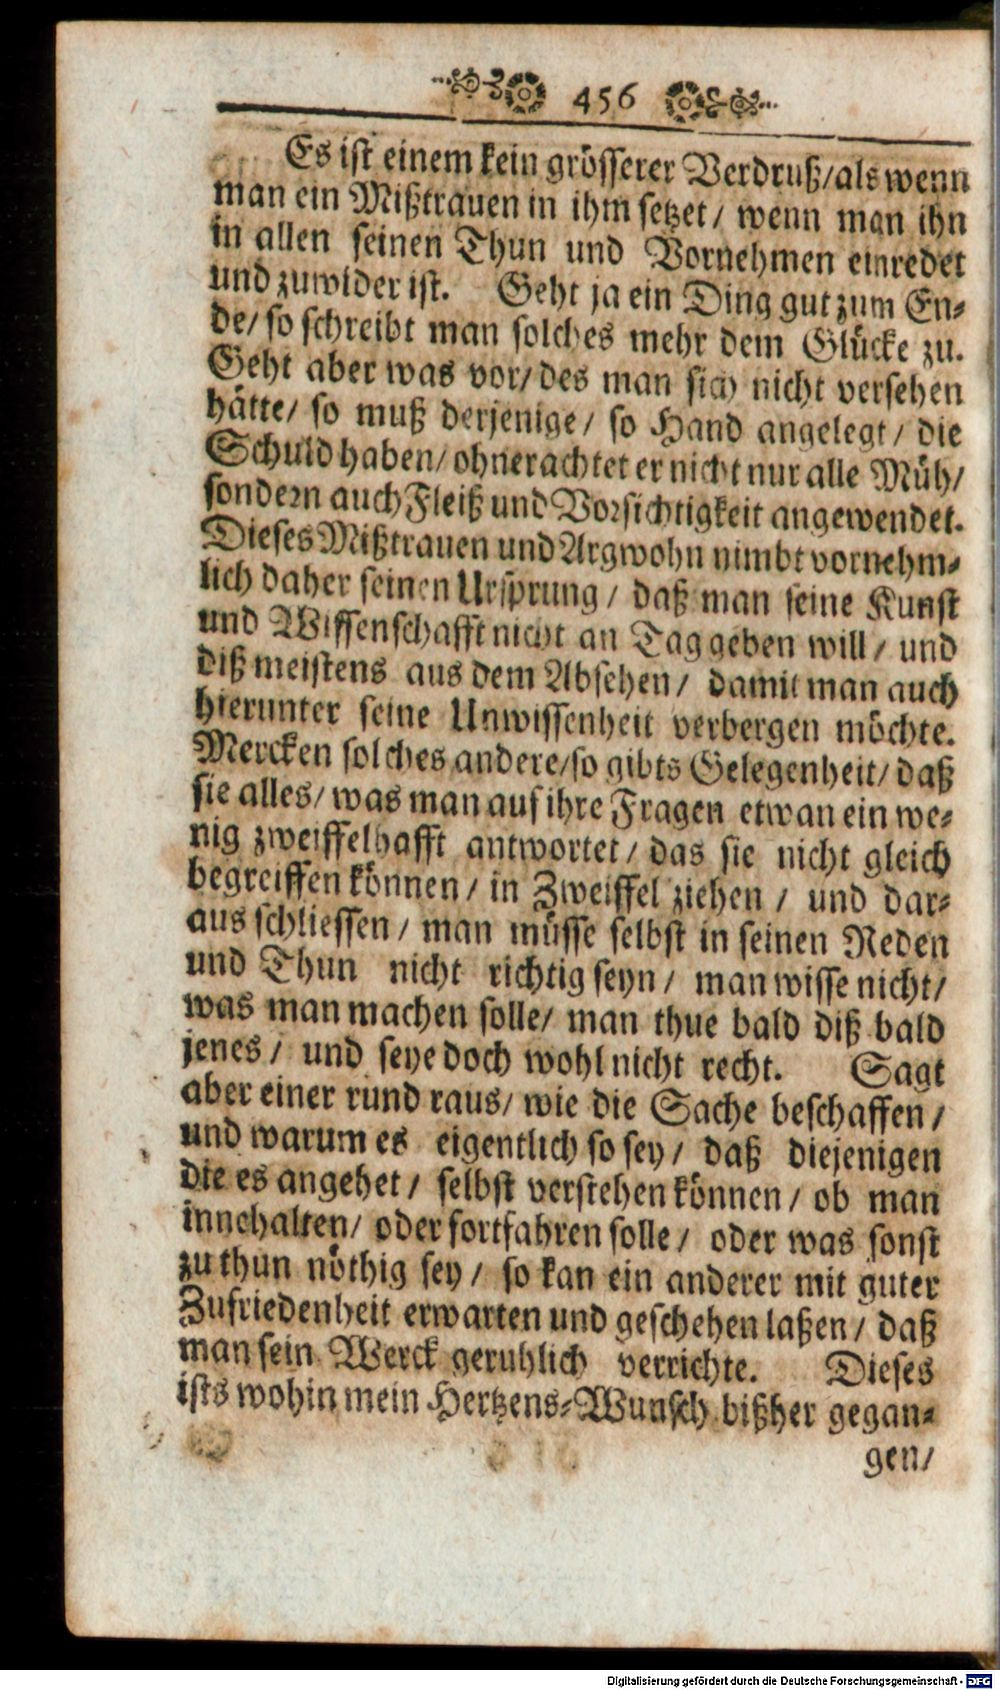 456
Es ist einem kein grösserer Verdruß/als wenn
man ein Mißtrauen in ihm setzet/ wenn man ihn
in allen seinen Thun und Vornehmen einredet
und zuwider ist. Geht ja ein Ding gut zum En-
de/ so schreibt man solches mehr dem Glücke zu.
Geht aber was vor/ des man sich nicht versehen
hätte/ so muß derjenige/ so Hand angelegt/ die
Schuld haben/ ohnerachtet er nicht nur alle Müh/
sondern auch Fleiß und Vorsichtigkeit angewendet.
Dieses Mißtrauen und Argwohn nimbt vornehm-
lich daher seinen Ursprung/ daß man seine Kunst
und Wissenschafft nicht an Tag geben will/ und
diß meistens aus dem Absehen/ damit man auch
hierunter seine Unwissenheit verbergen möchte.
Mercken solches andere/so gibts Gelegenheit/ daß
sie alles/ was man auf ihre Fragen etwan ein we-
nig zweiffelhafft antwortet/ das sie nicht gleich
begreiffen können/ in Zweiffel ziehen/ und dar-
aus schliessen/ man müsse selbst in seinen Reden
und Thun nicht richtig seyn/ man wisse nicht/
was man machen solle/ man thue bald diß bald
jenes/ und seye doch wohl nicht recht. Sagt
aber einer rund raus/ wie die Sache beschaffen/
und warum es eigentlich so sey/ daß diejenigen
die es angehet/ selbst verstehen können/ ob man
innehalten/ oder fortfahren solle/ oder was sonst
zu thun nöthig sey/ so kan ein anderer mit guter
Zufriedenheit erwarten und geschehen laßen/ daß
man sein Werck geruhlich verrichte. Dieses
ists wohin mein Hertzens-Wunsch bißher gegan-
gen/
Digitalisierung gefördert durch die Deutsche Forschungsgemeinschaft - DFG